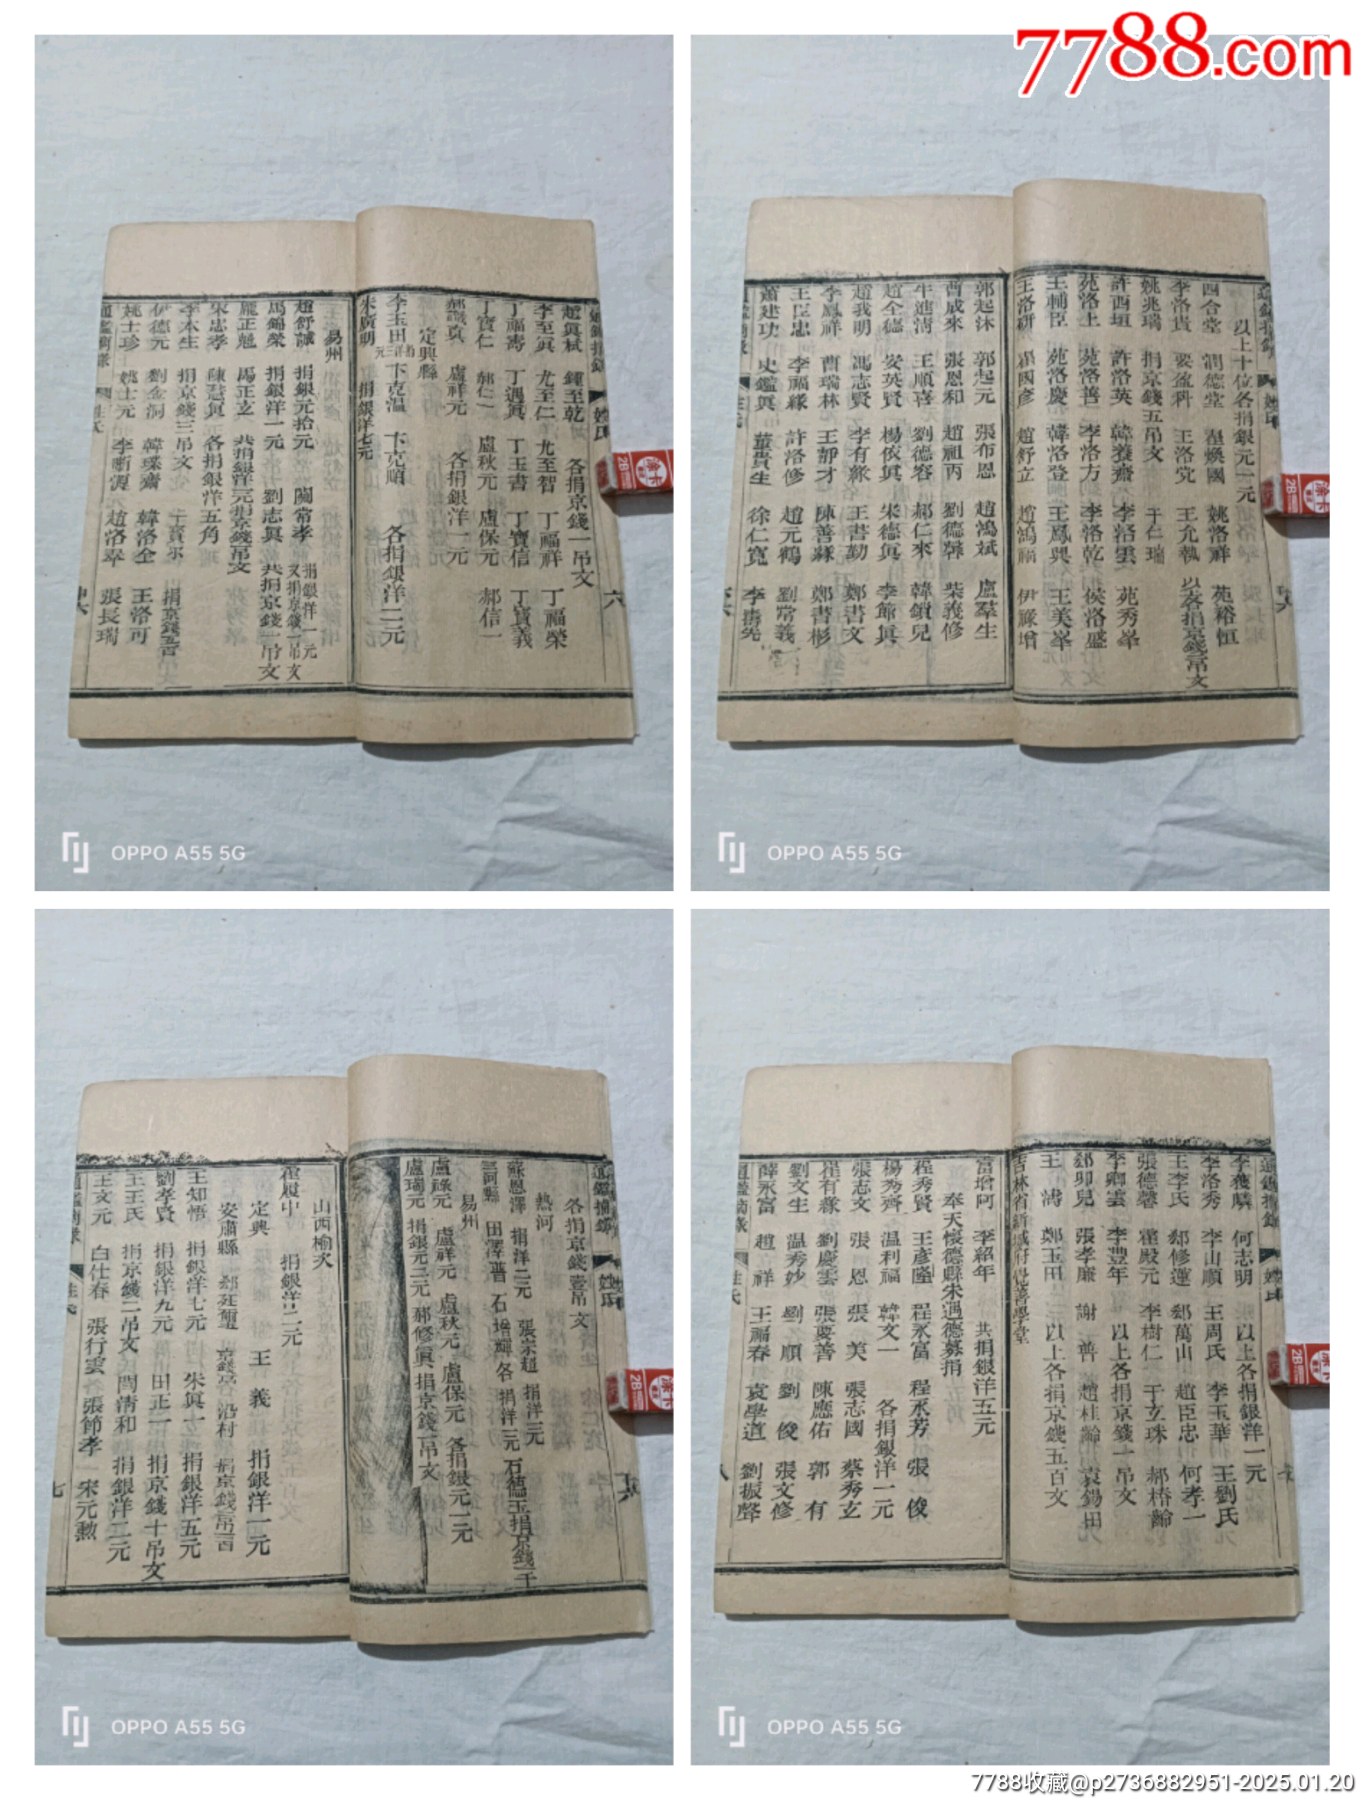 7788.com
趙眞栻　鍾至乾　各捐京錢一吊文
李至眞　尤至仁　尤至智　丁福祥　丁福榮
丁福壽　丁遇眞　丁玉書　丁寶信　丁寶義
丁寶仁　郝仁一　盧秋元　盧保元　郝信一
盧祥元　各捐銀洋一元
定興縣
李玉田　卞克温　卞克明　各捐銀洋二元
朱廣明　捐銀洋七元
易州
趙舒誠　捐銀元拾元　閻常孝　捐銀洋一元　又捐京錢一吊文
馬錫榮　捐銀洋一元　劉志眞　共捐京錢一吊文
龐正魁　馬正立
宋忠孝　陳慧眞　各捐銀洋五角
李本生　捐京錢三吊文
伊德元　劉金洞　韓瑧齋　韓洛全　王洛可
姚士珍　姚士元　趙洛翠　張長瑞
六
以上十位各捐銀元一元
四合堂　潤德堂　翟煥國　姚洛祥　苑裕恒
李洛貴　王洛究　王允執　以上各捐京錢一吊文
姚兆瑞　捐京錢五吊文　于仁瑞
許西垣　許洛英　韓養齋　李洛雲　苑秀峯
苑洛上　苑洛善　李洛方　李洛乾　侯洛盛
王輔臣　苑洛慶　韓洛登　王鳳興　王美峯
王洛研　崔國彥　趙舒立　趙鴻瑞　伊豫增
郭起沐　郭起元　張布恩　趙鴻斌　盧羣生
曹成來　張恩和　趙祖丙　劉德聲　柴義修
牛進淸　王順喜　劉德容　郝仁來　韓鎖兒
趙全德　安英賢　楊依眞　朱德眞　李節眞
趙我明　馮志賢　李有緣　王書勤　鄭書文
李鳳祥　曹瑞林　王靜才　陳善緣　鄭書杉
王臣忠　李福緣　許洛修　趙元鶴　劉常義
蕭建功　史鑑眞　董貴生　徐仁寬　李壽先
各捐京錢壹吊文
熱河
蘇恩澤　捐洋二元　張宗趙　捐洋二元
三河縣　田澤普　石增輝　各捐洋三元　石德玉捐京錢一千
易州
盧祿元　盧祥元　盧秋元　盧保元　各捐銀元一元
盧瑞元　捐銀元二元　郝修眞　捐京錢一吊文
山西榆次
程履中　捐銀洋二元
定興　王義　捐銀洋一元
安肅縣　沿村
王知悟　捐銀洋七元　朱眞一　捐銀洋五元
劉孝賢　捐銀洋九元　田正一　捐京錢十吊文
王王氏　捐京錢二吊文　閆淸和　捐銀洋二元
王文元　白仕春　張行雲　張節孝　宋元勲
七
李獲麟　何志明　以上各捐銀洋一元
李洛秀　李山順　王周氏　李玉華　王劉氏
王李氏　郄修蓮　郄萬山　趙臣忠　何孝一
張德馨　翟殿元　李樹仁　于立珠　郝椿齡
李卿雲　李豐年　以上各捐京錢一吊文
郄卯兒　張孝廉　謝普　趙桂齡　袁錫田
王濤　鄭玉田　以上各捐京錢五百文
吉林省新城府
富增阿　李紹年　共捐銀洋五元
奉天懷德縣宋遇德募捐
程秀賢　王彥隆　程永富　程永芳　張俊
楊秀齊　温利福　韓文一　各捐銀洋一元
張志文　張恩　張美　張志國　蔡秀玄
程有緣　劉慶雲　張要善　陳應佑　郭有
劉文生　温秀妙　劉順　劉俊　張文修
薛永富　趙祥　王福春　袁學道　劉振聲
八
OPPO A55 5G
OPPO A55 5G
OPPO A55 5G
OPPO A55 5G
7788收藏@p2736882951-2025.01.20